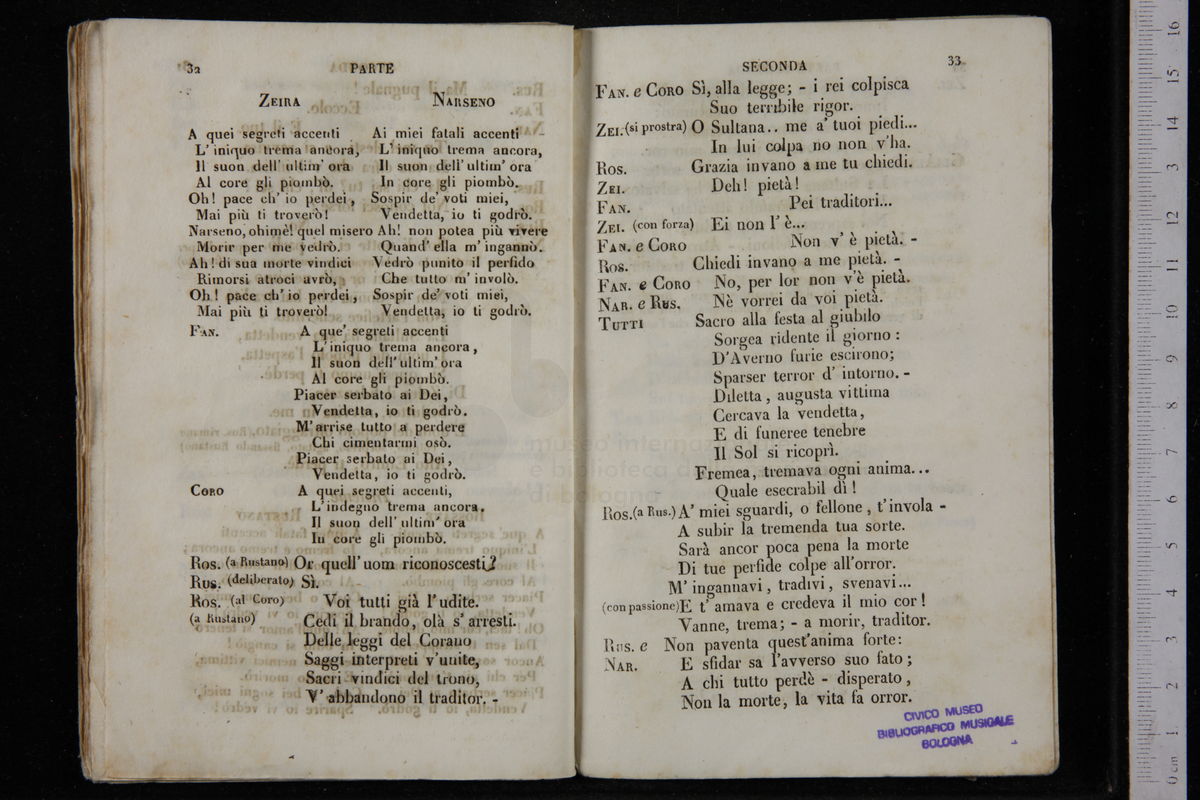 32 PARTE
ZEIRA
A quei segreti accenti
L' iniquo trema ancora,
Il suon dell' ultim' ora
Al core gli piombò.
Oh! pace ch' io perdei,
Mai più ti troverò!
Narseno, ohimè! quel misero
Morir per me vedrò.
Ah! di sua morte vindici
Rimorsi atroci avrò,
Oh! pace ch' io perdei,
Mai più ti troverò!
NARSENO
Ai miei fatali accenti
L' iniquo trema ancora,
Il suon dell' ultim' ora
In core gli piombò.
Sospir de' voti miei,
Vendetta, io ti godrò.
Ah! non potea più vivere
Quand' ella m' ingannò.
Vedrò punito il perfido
Che tutto m' involò.
Sospir de' voti miei,
Vendetta, io ti godrò.
FAN. A que' segreti accenti
L' iniquo trema ancora,
Il suon dell' ultim' ora
Al core gli piombò.
Piacer serbato ai Dei,
Vendetta, io ti godrò.
M' arrise tutto a perdere
Chi cimentarmi osò.
Piacer serbato ai Dei,
Vendetta, io ti godrò.
CORO A quei segreti accenti,
L' indegno trema ancora,
Il suon dell' ultim' ora
In core gli piombò.
ROS. (a Rustano) Or quell' uom riconoscesti?
RUS. (deliberato) Sì.
ROS. (al Coro) Voi tutti già l' udite.
(a Rustano) Cedi il brando, olà s' arresti.
Delle leggi del Corano
Saggi interpreti v' unite,
Sacri vindici del trono,
V' abbandono il traditor. -
SECONDA 33
FAN. e CORO Sì, alla legge; - i rei colpisca
Suo terribile rigor.
ZEI. (si prostra) O Sultana.. me a' tuoi piedi...
In lui colpa no non v' ha.
ROS. Grazia invano a me tu chiedi.
ZEI. Deh! pietà!
FAN. Pei traditori...
ZEI. (con forza) Ei non l' è...
FAN. e CORO Non v' è pietà. -
ROS. Chiedi invano a me pietà. -
FAN. e CORO No, per lor non v' è pietà.
NAR. e RUS. Nè vorrei da voi pietà.
TUTTI Sacro alla festa al giubilo
Sorgea ridente il giorno:
D' Averno furie escirono;
Sparser terror d' intorno. -
Diletta, augusta vittima
Cercava la vendetta,
E di funeree tenebre
Il Sol si ricoprì.
Fremea, tremava ogni anima...
Quale esecrabil dì!
ROS. (a Rus.) A' miei sguardi, o fellone, t' invola -
A subir la tremenda tua sorte.
Sarà ancor poca pena la morte
Di tue perfide colpe all' orror.
M' ingannavi, tradivi, svenavi...
(con passione) E t' amava e credeva il mio cor!
Vanne, trema; - a morir, traditor.
RUS. e Non paventa quest' anima forte:
NAR. E sfidar sa l' avverso suo fato;
A chi tutto perdè - disperato,
Non la morte, la vita fa orror.
CIVICO MUSEO
BIBLIOGRAFICO MUSICALE
BOLOGNA